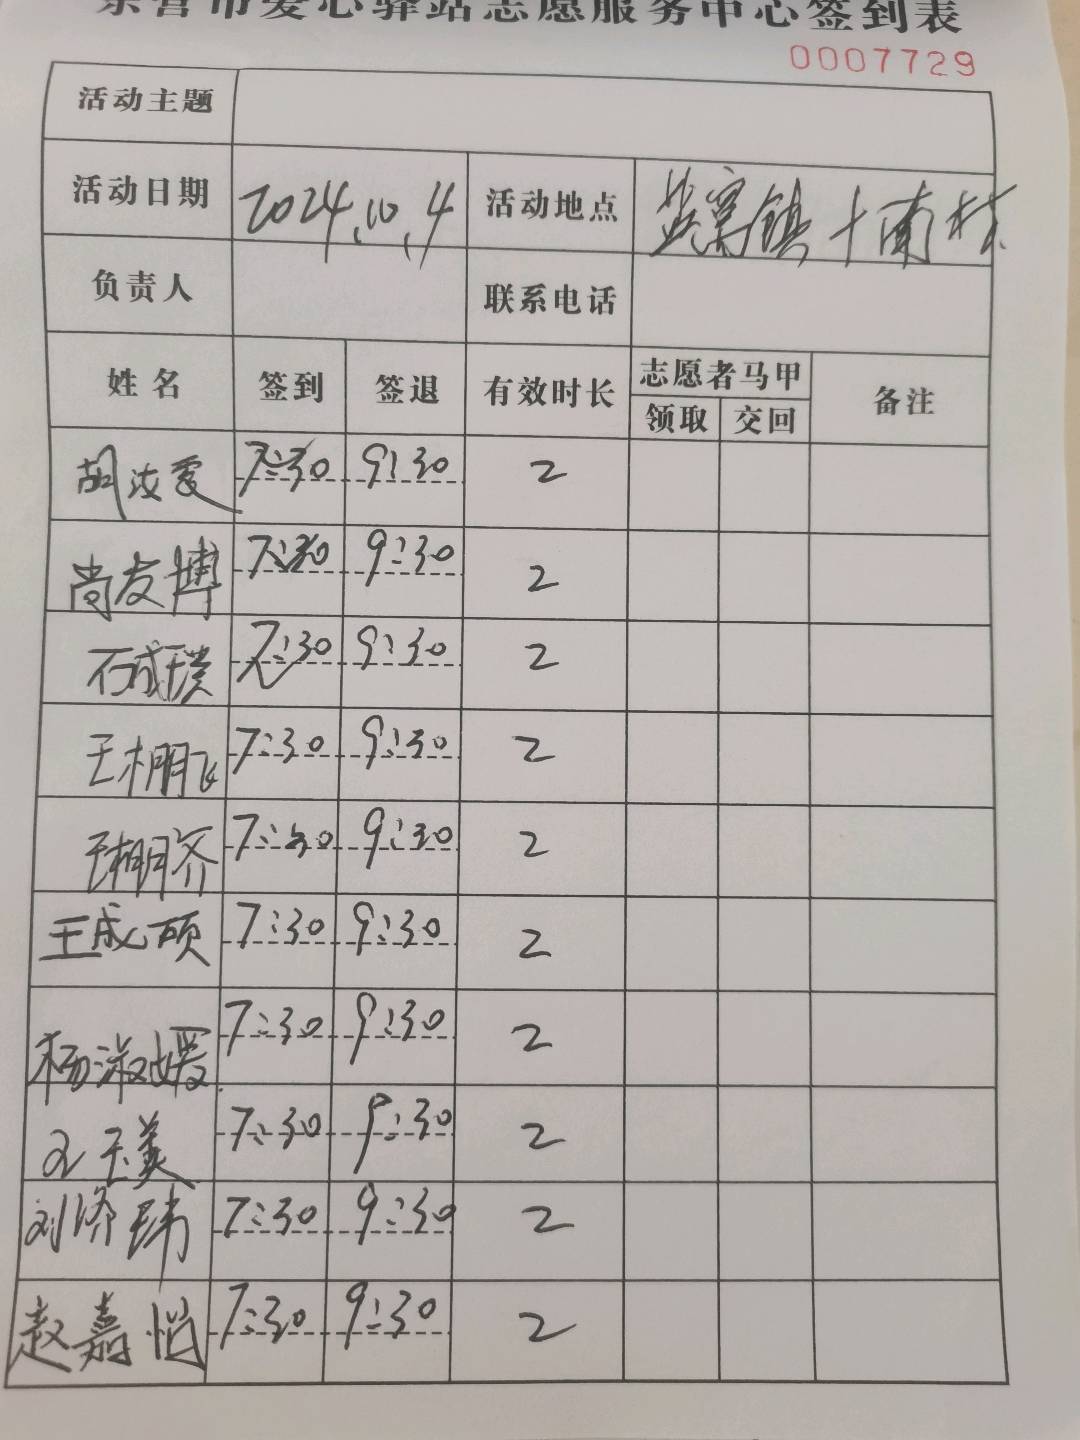 东营市爱心驿站志愿服务中心签到表
0007729
活动主题
活动日期 2024.10.4 活动地点 盐窝镇十南村
负责人 联系电话
姓名 签到 签退 有效时长 志愿者马甲 备注
领取 交回
胡汝雯 7:30 9:30 2
尚友博 7:30 9:30 2
石成璞 7:30 9:30 2
王棚飞 7:30 9:30 2
王棚齐 7:30 9:30 2
王成硕 7:30 9:30 2
杨淑媛 7:30 9:30 2
王美 7:30 9:30 2
刘济玮 7:30 9:30 2
赵嘉恺 7:30 9:30 2